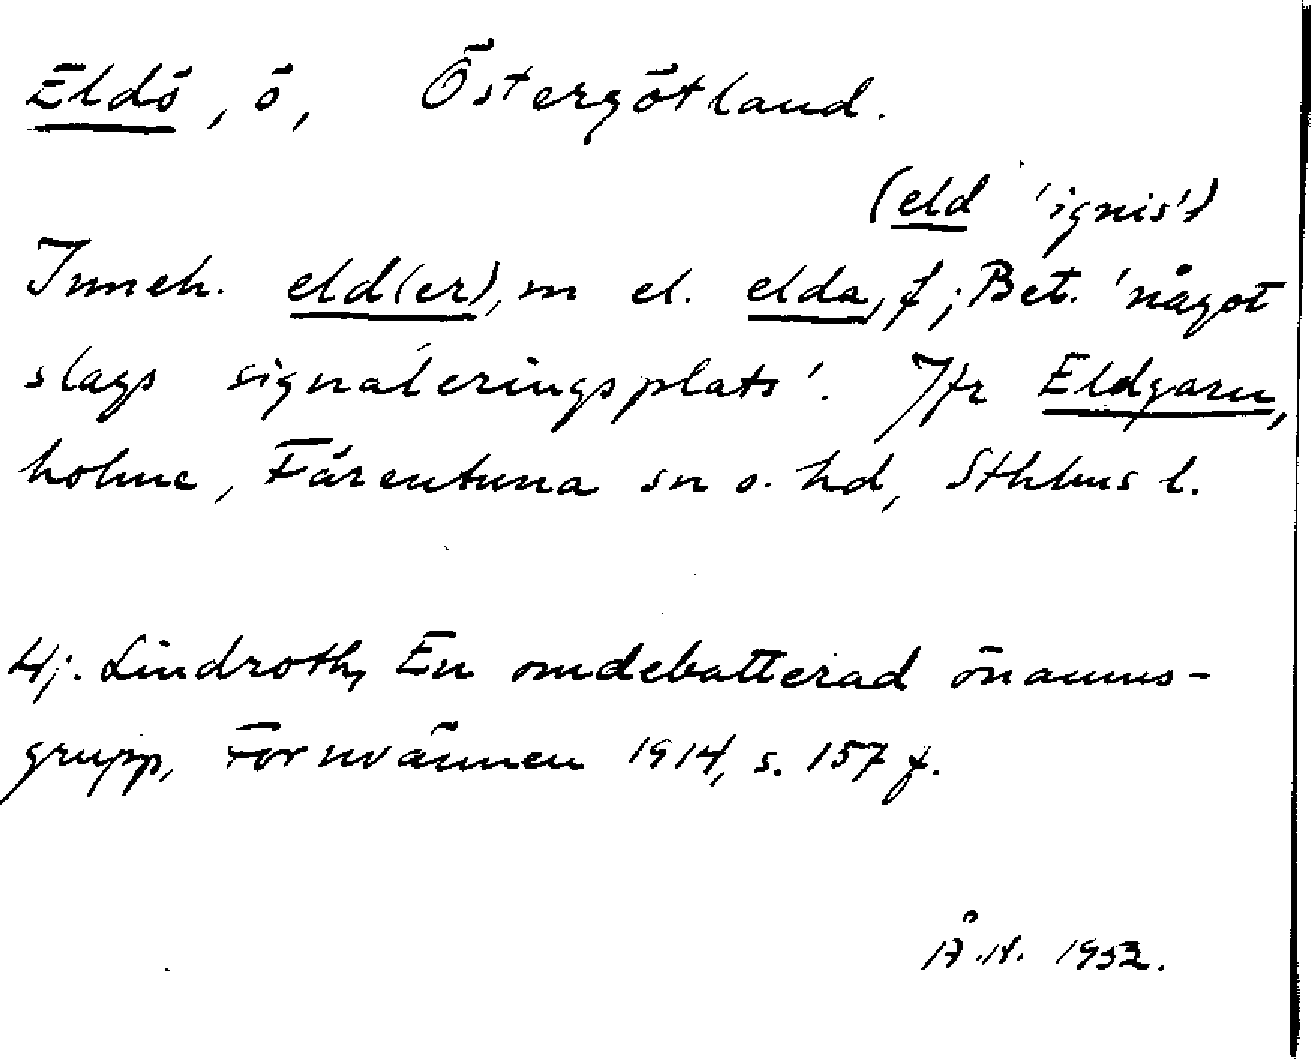 Eldö, ö, Östergötland.
(eld 'ignis')
Inneh. eld(er), m el. elda, f; Bet. 'något
slags signaleringsplats'. Jfr Eldgarn,
holme, Färentuna sn o. hd, Sthlms l.
Hj. Lindroth, En omdebatterad önamns-
grupp, Fornvännen 1914, s. 157 f.
Å.N. 1952.